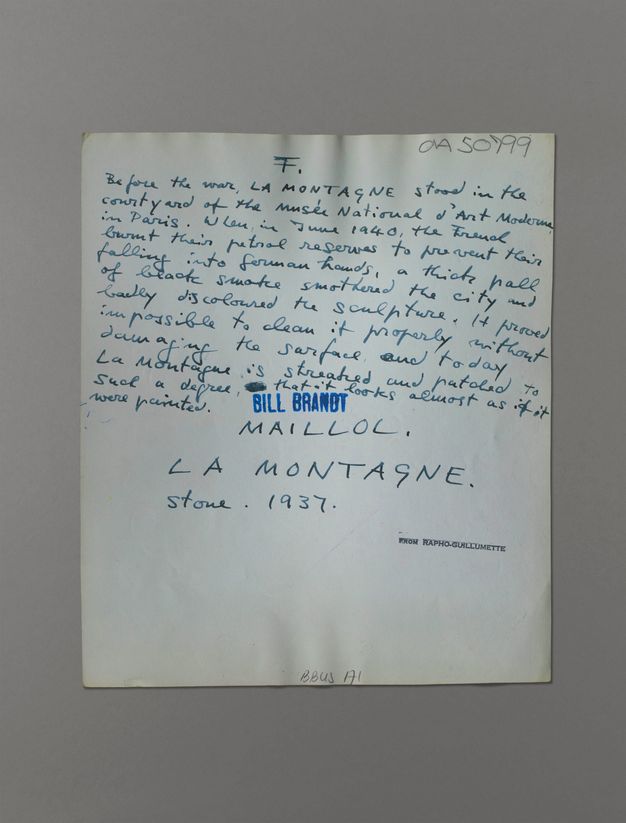 OA 50799
F.
Before the war, LA MONTAGNE stood in the
courtyard of the Musée National d'Art Moderne
in Paris. When, in June 1940, the French
burnt their petrol reserves to prevent their
falling into German hands, a thick pall
of black smoke smothered the city and
badly discoloured the sculpture. It proved
impossible to clean it properly without
damaging the surface and today
La Montagne is streaked and patched to
such a degree, that it looks almost as if it
were painted.
BILL BRANDT
MAILLOL.
LA MONTAGNE.
stone. 1937.
FROM RAPHO-GUILLUMETTE
BBUS 171